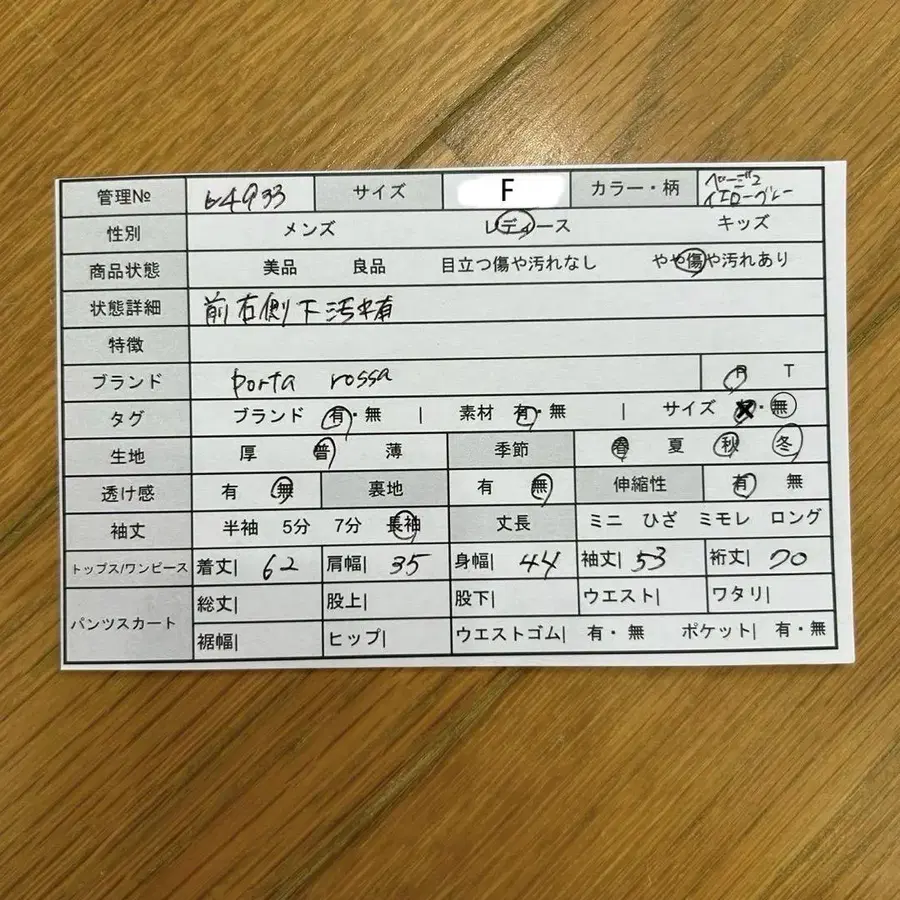 管理№ b4933 サイズ F カラー・柄 ベージュ イエローグレー
性別 メンズ レディース キッズ
商品状態 美品 良品 目立つ傷や汚れなし やや傷や汚れあり
状態詳細 前右側下汚れ有
特徴
ブランド porta rossa R T
タグ ブランド 有・無 | 素材 有・無 | サイズ ・無
生地 厚 普 薄 季節 春 夏 秋 冬
透け感 有 無 裏地 有 無 伸縮性 有 無
袖丈 半袖 5分 7分 長袖 丈長 ミニ ひざ ミモレ ロング
トップス/ワンピース 着丈| 62 肩幅| 35 身幅| 44 袖丈| 53 裄丈| 70
パンツスカート 総丈| 股上| 股下| ウエスト| ワタリ|
裾幅| ヒップ| ウエストゴム| 有・無 ポケット| 有・無